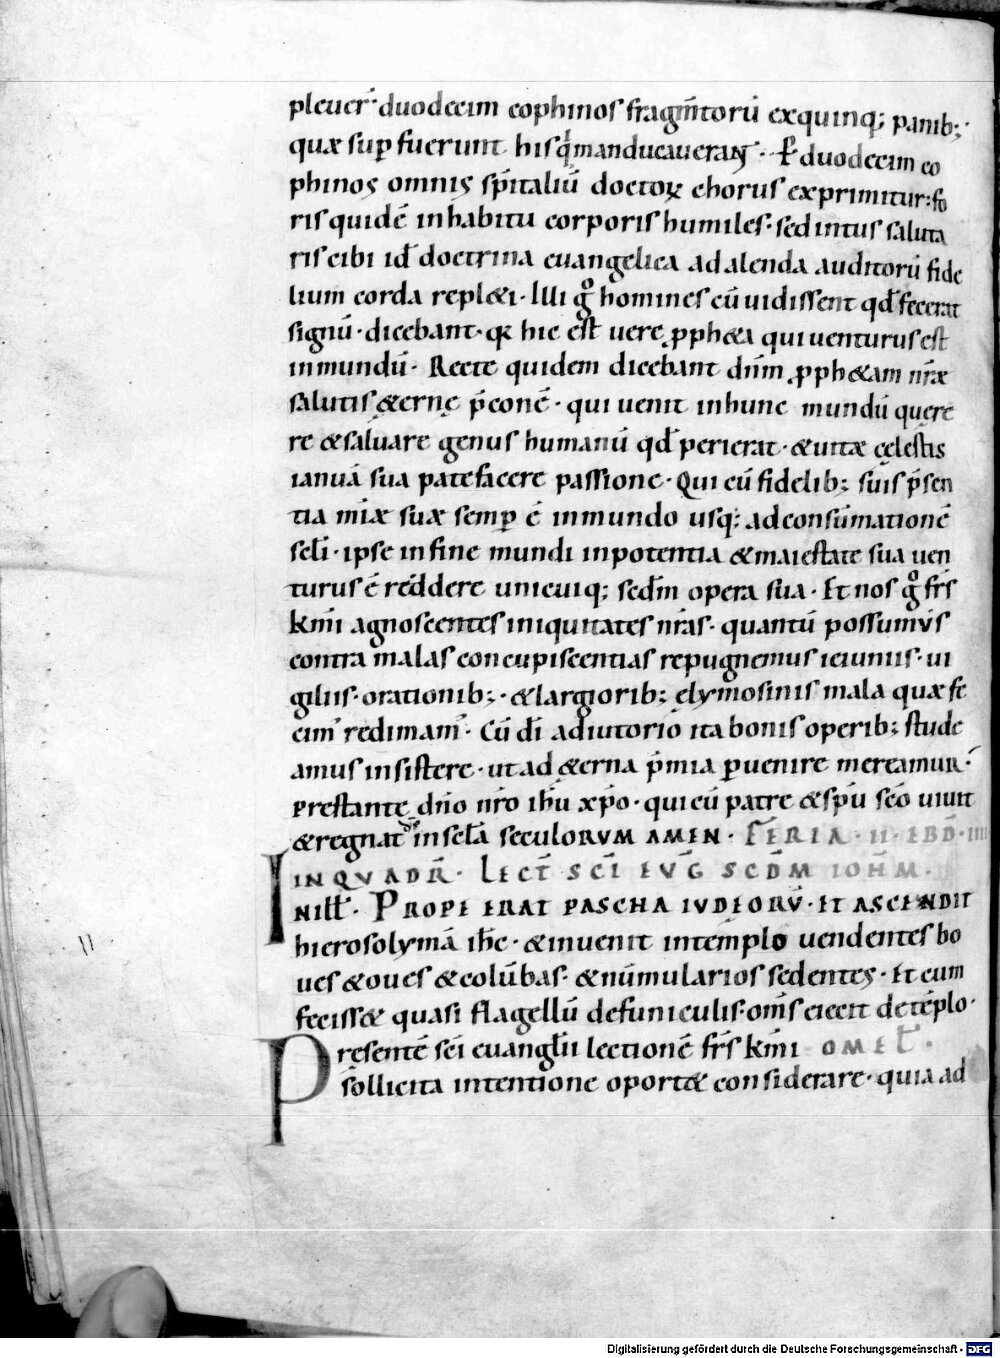 pleuer̄· duodecim cophinos fragm̄torū exquinq; panib;·
quæ sup̄fuerunt his q̄ manducauerant·· P̄ duodecim co
phinos omnis sp̄italiū doctoꝝ chorus exprimitur: fo
ris quidē inhabitu corporis humiles· sed intus saluta
ris cibi id̄ doctrina euangelica ad alenda auditorū fide
lium corda repl&i· Illi g̊ homines cū uidissent qd̄ fecerat
signū· dicebant· qꝛ hic est̄ uere ꝓph&a qui uenturus est
inmundū· Recte quidem dicebant dn̄m ꝓph&am nr̄æ
salutis &ernę p̄conē· qui uenit inhunc mundū quęre
re &saluare genus humanū qd̄ perierat· &uitæ cęlestis
ianuā sua patefacere passione· Qui cū fidelib; suis p̄sen
tia mīæ suæ semꝑ ē inmundo usq; adconsūmationē
scl̄i· ipse in fine mundi inpotentia &maiestate sua uen
turus ē reddere unicuiq; scd̄m opera sua· Et nos g̊ frs̄
km̄i agnoscentes iniquitates nr̄as· quantū possumus
contra malas concupiscentias repugnemus ieiuniis· ui
giliis· orationib;· &largiorib; elymosinis mala quæ fe
cim̄ redimam̄· Cū dī adiutorio ita bonis operib; stude
amus insistere· ut ad &erna p̄mia ꝑuenire mereamur·
prestante dn̄o nr̄o ih̄u xp̄o· qui cū patre &sp̄u sc̄o uiuit
&regnat dˢ̄ in scl̄a seculorum amen· Feria· II· ebd̄· IIII
in quadr̄· Lect̄ sc̄i eug̅ scd̄m ioh̄m·
In ill̄· Prope erat pascha iudeorū· et ascendit
hierosolymā ih̄c· &inuenit intemplo uendentes bo
ues &oues &colūbas· &nūmularios sedentes· Et cum
feciss& quasi flagellū defuniculis· oms̄ eiecit detēplo·
Presentē sc̄i euangl̄ii lectionē frs̄ km̄i omel̄·
sollicita intentione oport& considerare· quia ad
Digitalisierung gefördert durch die Deutsche Forschungsgemeinschaft - DFG